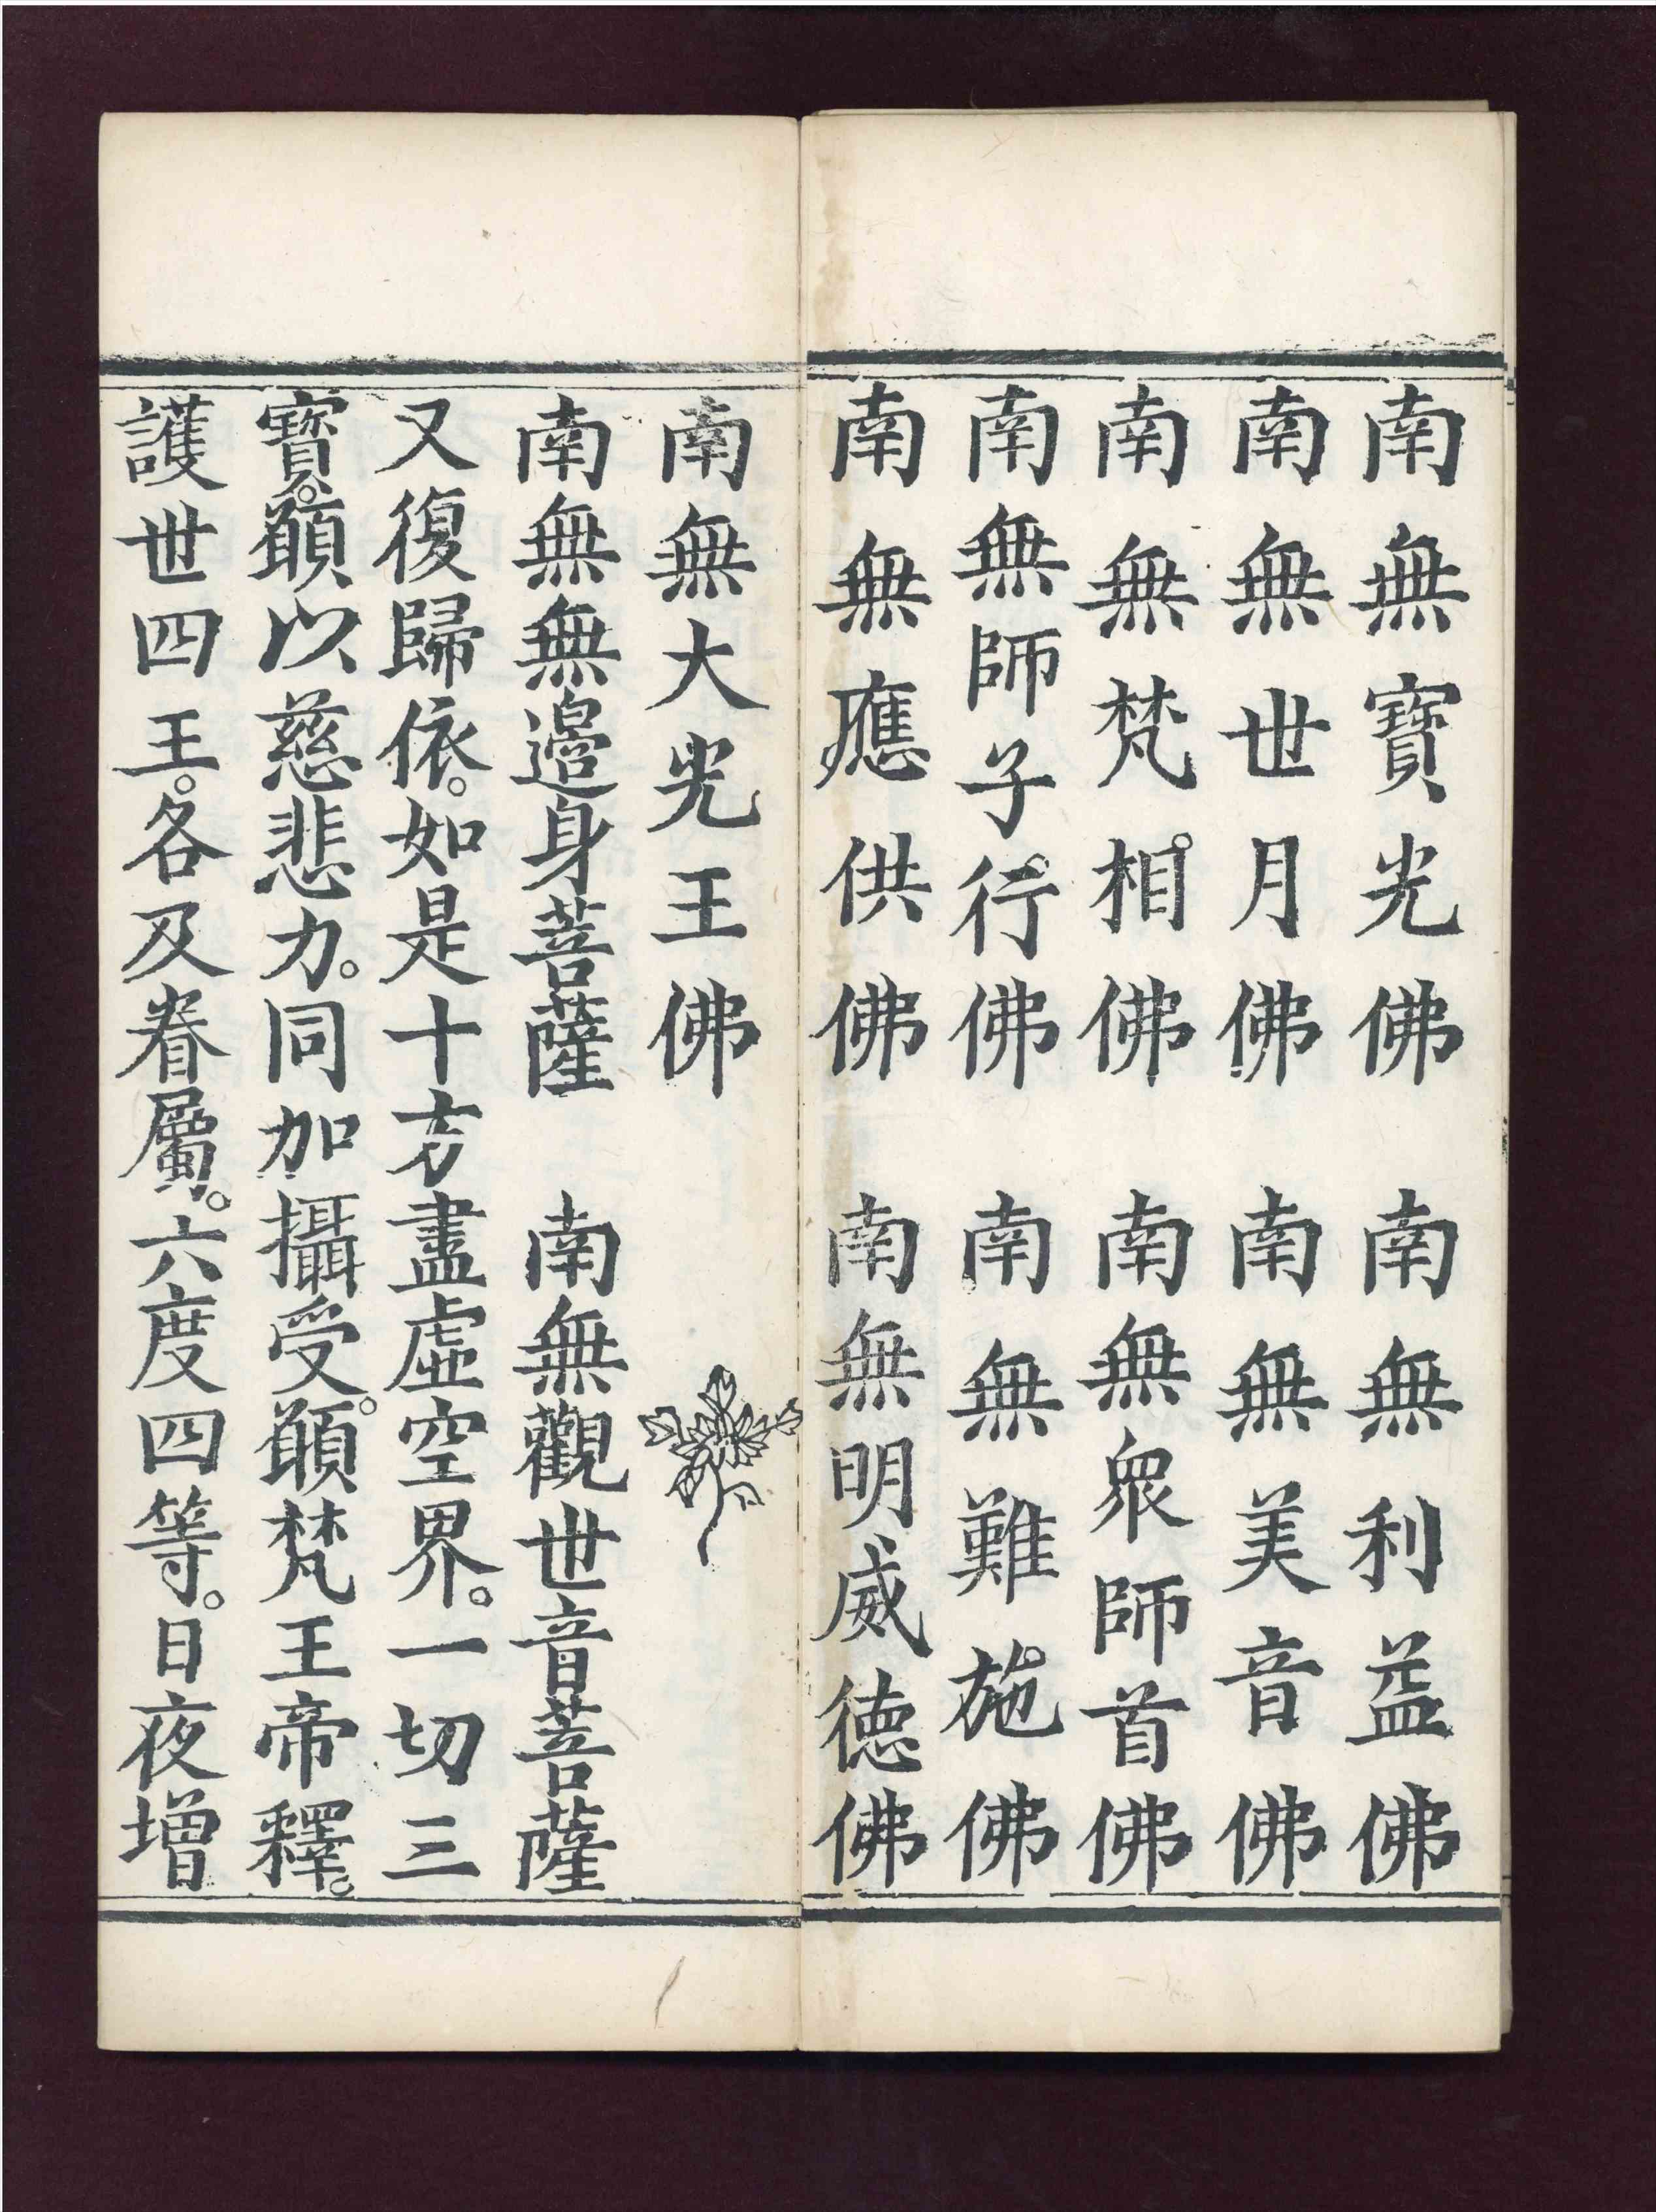 南無寶光佛　南無利益佛
南無世月佛　南無美音佛
南無梵相佛　南無衆師首佛
南無師子行佛　南無難施佛
南無應供佛　南無明威德佛
南無大光王佛
南無無邊身菩薩　南無觀世音菩薩
又復歸依。如是十方盡虛空界。一切三
寶。願以慈悲力。同加攝受。願梵王帝釋。
護世四王。各及眷屬。六度四等。日夜增